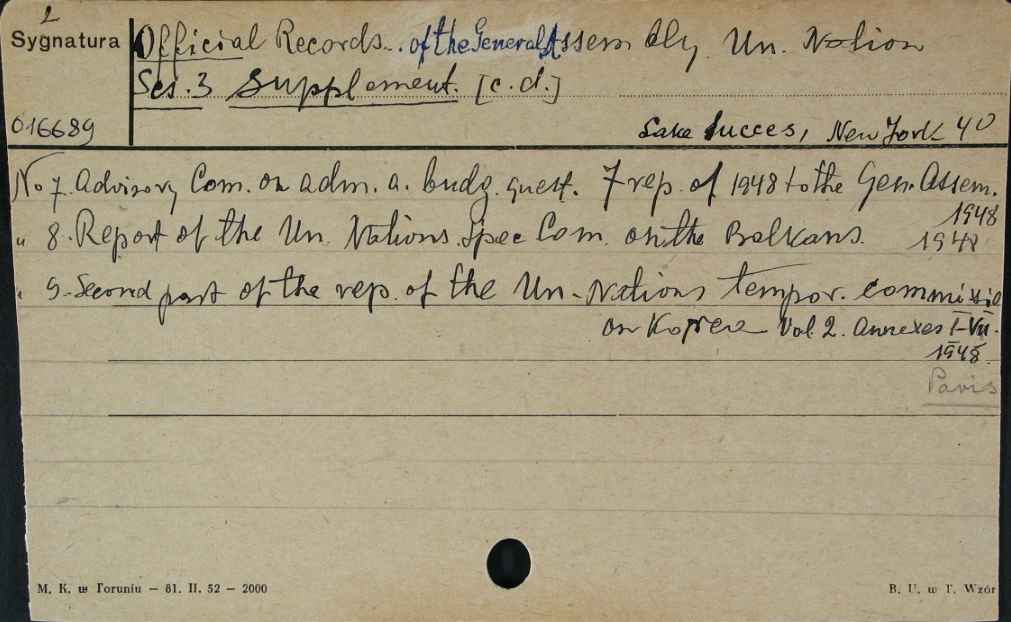 2
Sygnatura Official Records... of the General Assembly, Un. Nation
Ses. 3 Supplement. [c.d.]
016689 Lake Succes, New York 40
No 7. Advisory Com. on adm. a. budg. quest. 7 rep. of 1948 to the Gen. Assem.
1948
" 8. Report of the Un. Nations. Spec Com. on the Balkans. 1948
" 9. Second part of the rep. of the Un-Nations tempor. commissio
on Korea Vol. 2. Annexes I-VII.
1948.
Paris
M. K. w Toruniu — 81. II. 52 — 2000 B. U. w T. Wzór